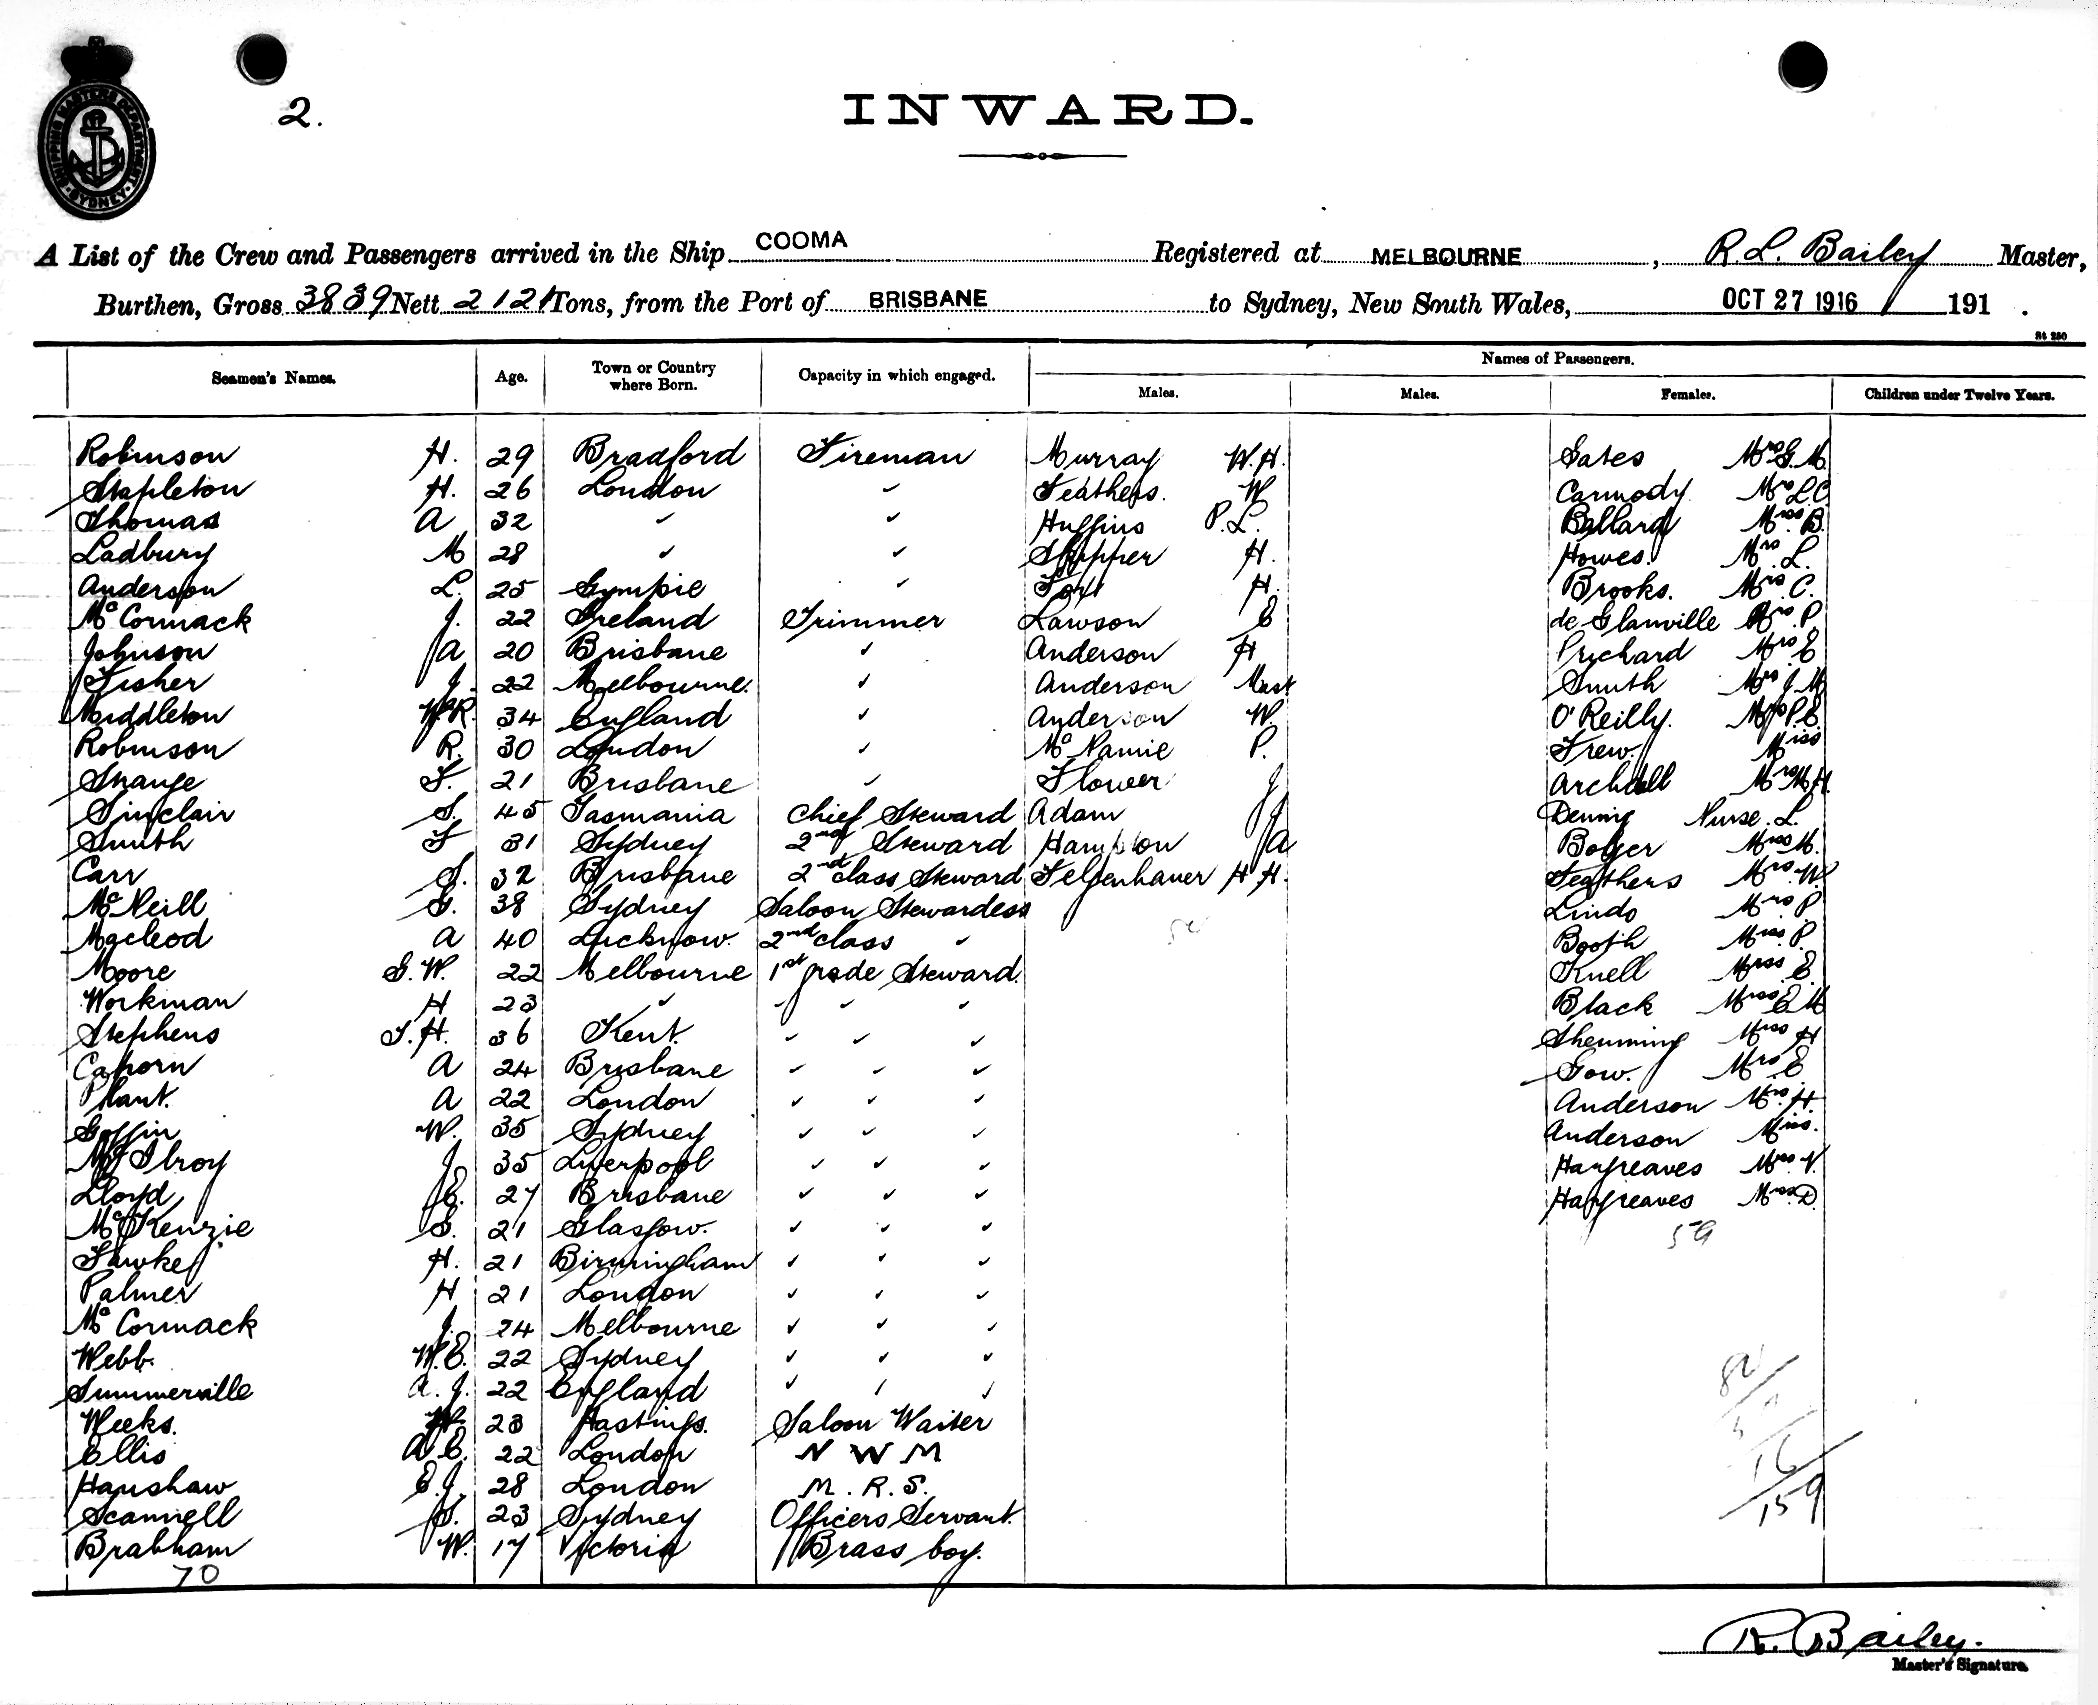 SHIPPING MASTERS DEPARTMENT SYDNEY
2.
INWARD.
A List of the Crew and Passengers arrived in the Ship COOMA Registered at MELBOURNE, R. L. Bailey Master,
Burthen, Gross 3839 Nett 2121 Tons, from the Port of BRISBANE to Sydney, New South Wales, OCT 27 1916 191 .
St 250
Names of Passengers.
Seamen's Names. Age. Town or Country where Born. Capacity in which engaged. Males. Males. Females. Children under Twelve Years.
Robinson H. 29 Bradford Fireman Murray W.H. Gates Mrs G.M.
Stapleton H. 26 London " Feathers. W Carmody Mrs L.C
Thomas A 32 " " Huffins P.L. Ballard Miss B.
Ladbury M 28 " " Skipper H. Howes. Mrs. L.
Anderson L. 25 Gympie " H. Brooks. Mrs. C.
McCormack J. 22 Ireland Trimmer Lawson E de Glanville Mrs. P.
Johnson A 20 Brisbane " Anderson H Prichard Mrs E
Fisher J. 22 Melbourne. " Anderson Mast Smith Mrs J.M
Middleton W.R. 34 England " Anderson W. O'Reilly. P.E.
Robinson R. 30 London " McNamie P. Frew. Miss
Strange F. 21 Brisbane " Flower J Archdall Mrs M.H.
Sinclair S. 45 Tasmania Chief Steward Adam J Denny Nurse. L.
Smith F 31 Sydney 2nd Steward Hampton A Bolger Miss M.
Carr S. 32 Brisbane 2nd class Steward Felgenhauer H.H. Feathers Mrs. W.
McNeill G. 38 Sydney Saloon Stewardess Lindo Mrs P.
Macleod A 40 Lucknow. 2nd class " Booth Miss. P.
Moore G.W. 22 Melbourne 1st grade Steward. Knell Miss E.
Workman H 23 " " " " Black Miss E M
Stephens T.H. 36 Kent. " " " Shemming Miss H
Cahorn A 24 Brisbane " " " Gow. Mrs E
Plant. A 22 London " " " Anderson Mrs. H.
Goffin W. 35 Sydney " " " Anderson Miss.
McIlroy J 35 Liverpool " " " Hargreaves Miss V.
Lloyd E. 27 Brisbane " " " Hargreaves Miss D.
McKenzie S. 21 Glasgow. " " " 59
Fawkes H. 21 Birmingham " " "
Palmer H 21 London " " "
McCormack J. 24 Melbourne " " "
Webb. W.E. 22 Sydney " " "
Summerville A. J. 22 England " " "
Weeks. W. 23 Hastings. Saloon Waiter
Ellis A E. 22 London N W M
Hanshaw E.J. 28 London M. R. S.
Scannell S. 23 Sydney Officers Servant.
Brabham W. 17 Victoria Brass boy.
70
16
159
R. Bailey.
Master's Signature.